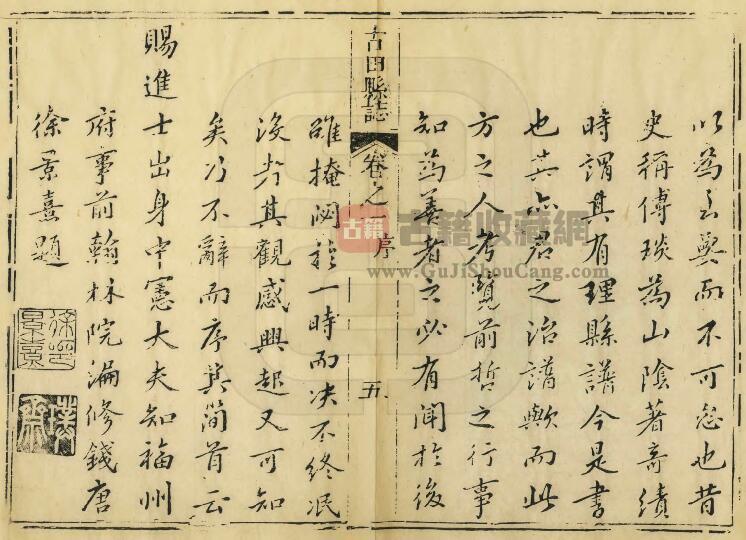 以為圭臬而不可忽也昔
史稱傅琰為山陰著奇績
時謂其有理縣譜今是書
也其亦君之治譜歟而此
方之人考覽前哲之行事
知為善者之必有聞於後
古田縣誌 卷之 序 五
雖掩閟於一時而決不終泯
沒於其觀感興起又可知
矣乃不辭而序其簡首云
賜進士出身中憲大夫知福州
府事前翰林院編修錢唐
徐景熹題
徐景熹印
古籍 古籍收藏網
www.GuJiShouCang.com